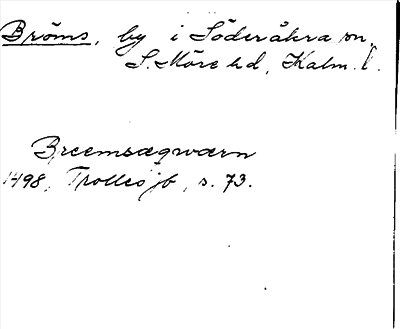 Bröms, by i Söderåkra sn,
S. Möre hd, Kalm. l.
Breemsæqwærn
1498, Trolles jb, s. 73.